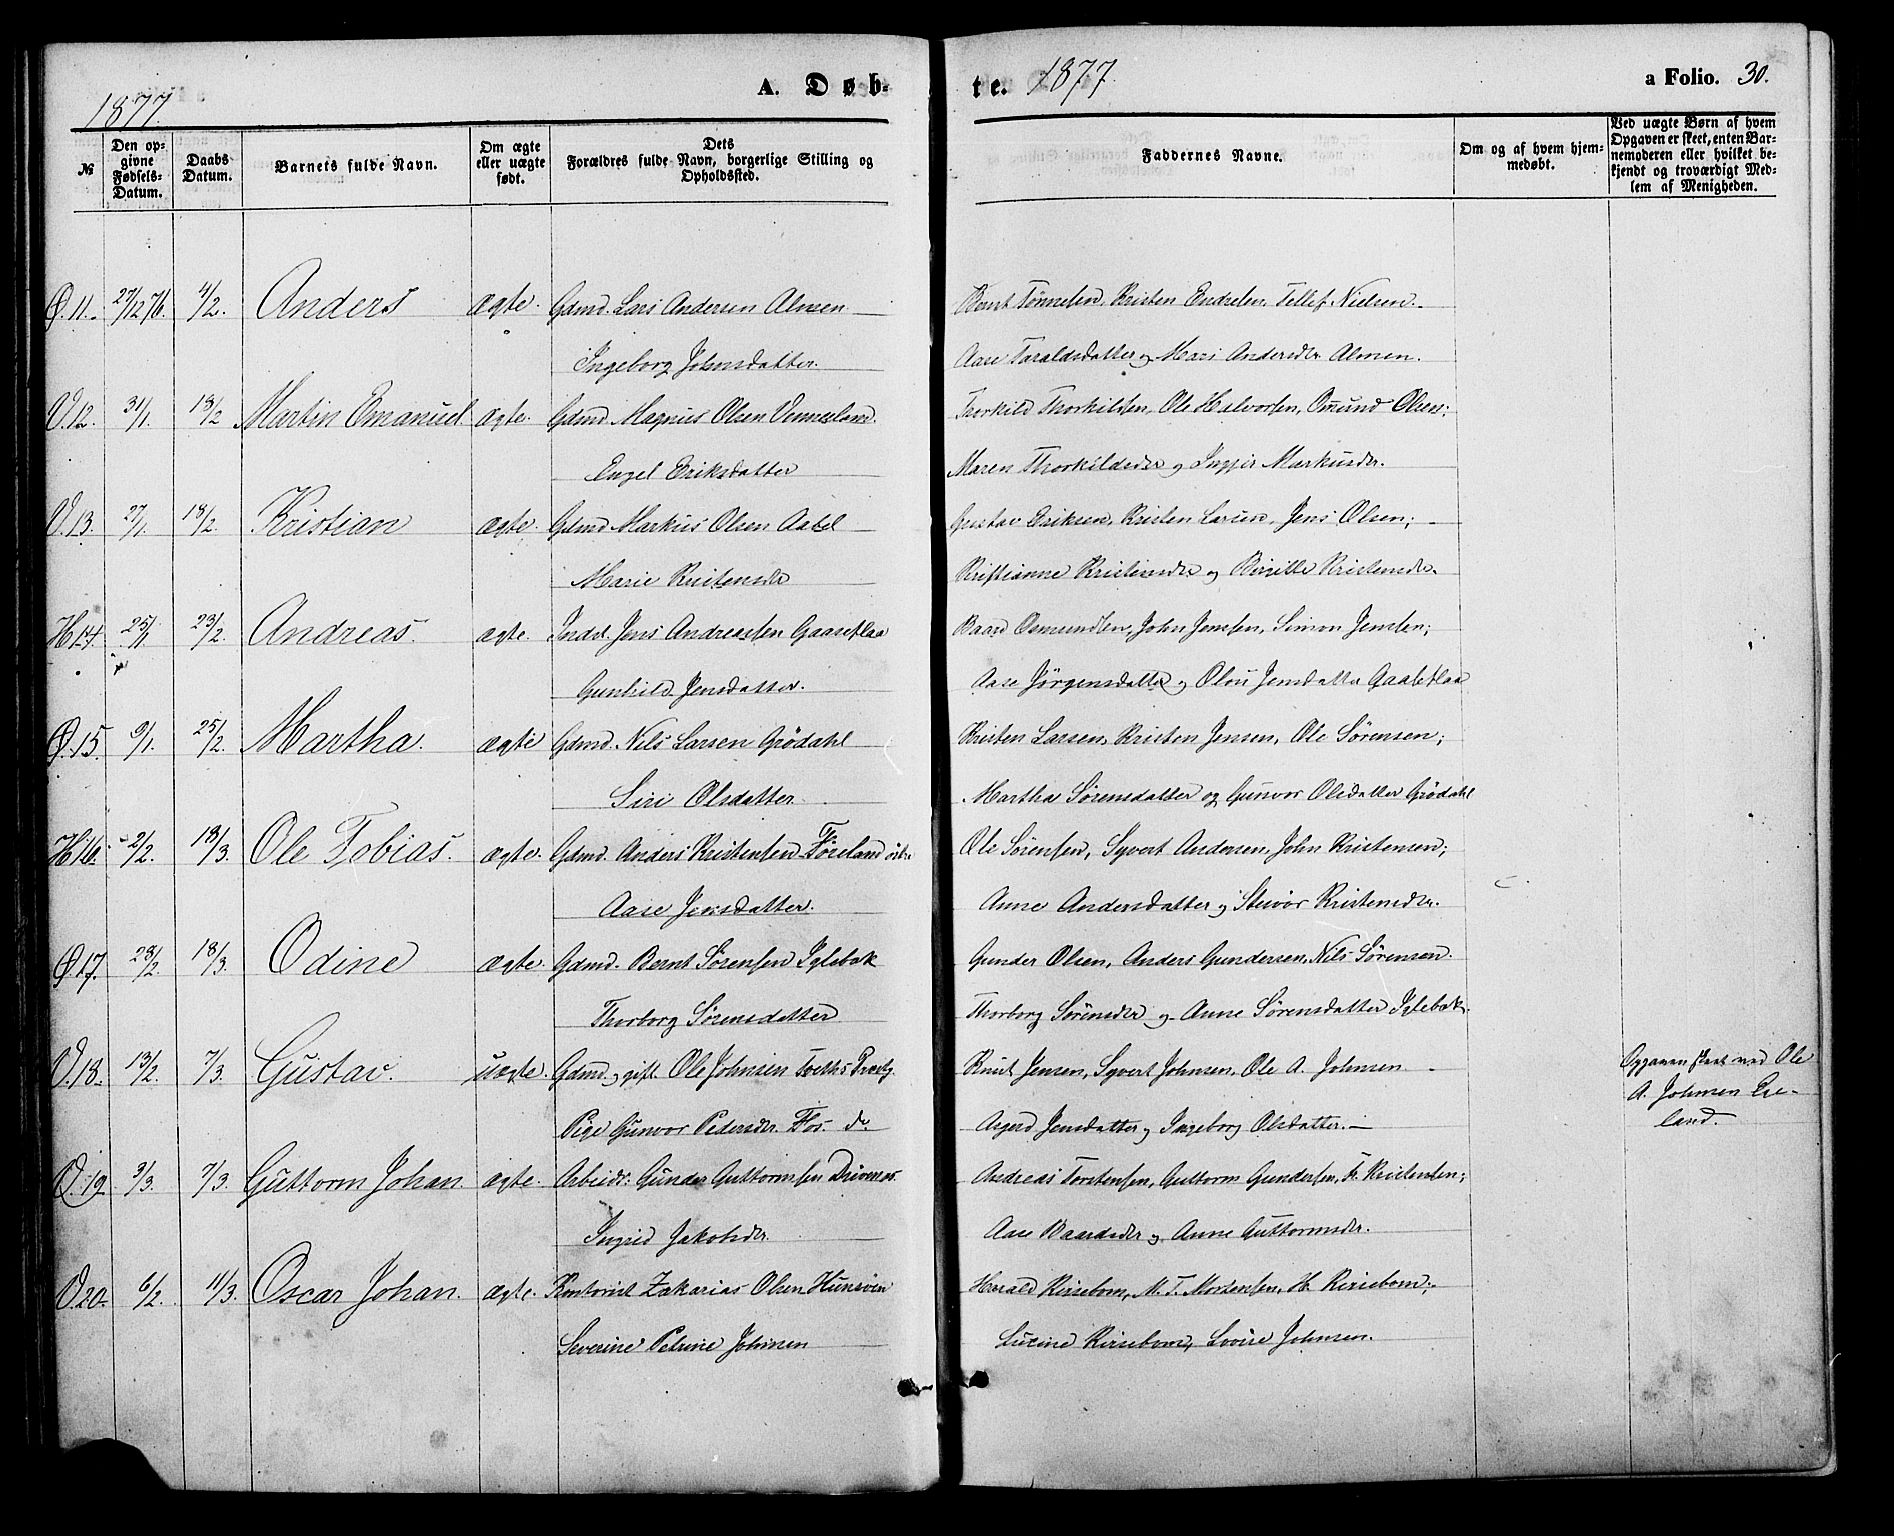 1877.
A. Døb-
te. 1877.
a Folio. 30.
№
Den op-
givne
Fødsels-
Datum.
Daabs
Datum.
Barnets fulde Navn.
Om ægte
eller uægte
født.
Dets
Forældres fulde Navn, borgerlige Stilling og
Opholdssted.
Faddernes Navne.
Om og af hvem hjem-
medøbt.
Ved uægte Børn af hvem
Opgaven er skeet, enten Bar-
nemoderen eller hvilket be-
kjendt og troværdigt Med-
lem af Menigheden.
Ø. 11. 27/12 76. 4/2. Anders ægte. Gdmd. Lars Andersen Almen Bernt Tønnesen, Kristen Endresen, Tellef Nielsen
Ingeborg Johnsdatter. Aase Taraldsdatter og Mari Andersdr Almen.
V. 12. 31/1. 18/2 Martin Emanuel ægte. Gdmd. Magnus Olsen Vennesland. Thorkild Thorkildsen, Ole Halvorsen, Omund Olsen;
Engel Eriksdatter Maren Thorkildsdr og Markusdr.
V. 13. 27/1. 18/2. Kristian ægte. Gdmd. Markus Olsen Gustav Eriksen, Kristen Larsen, Jens Olsen;
Marie Kristensdr Kristianne Kristensdr og Birgitte Kristensdr.
H. 14. 25/1. 23/2. Andreas. ægte. Inds. Jens Andreassen Gaaseflaa Baard Osmundsen, John Jenssen, Simon Jenssen;
Gunhild Jensdatter. Aase Jörgensdatter og Jensdatter Gaaseflaa
Ø. 15. 9/1. 25/2. Martha. ægte Gdmd. Nils Larsen Grödahl Kristen Larsen, Kristen Jensen, Ole Sørensen;
Siri Olsdatter. Martha Sørensdatter og Gunvor Olsdatter Grödahl
H. 16. 2/2. 18/3. Ole Tobias. ægte. Gdmd. Anders Kristensen Föreland Ole Sørensen, Syvert Andersen, John Kristensen;
Aase Jensdatter. Anne Andersdatter og Steivor Kristensdr.
Ø. 17. 28/2. 18/3. Odine ægte. Gdmd. Bernt Sörensen Iglebæk Gunder Olsen, Anders Gundersen, Nils Sörensen.
Thorborg Sörensdatter Thorborg Sörensdr og Anne Sörensdatter Iglebæk.
V. 18. 13/2. 7/3. Gustav. uægte. Gdmd. og gift Ole Johnsen Knut Jensen, Syvert Johnsen, Ole A. Johnsen Opgaven skeet ved Ole
Pige Gunvor Pedersdr. do Asgerd Jensdatter og Ingeborg Olsdatter. A. Johnsen Eie-
land.
Ø. 19 3/3. 7/3. Guttorm Johan ægte. Arbeidr. Gunder Guttormsen Drivenes. Andreas Torstensen, Guttorm Gundersen, Kristensen;
Ingrid Jakobsdr. Aase Baardsdr og Anne Guttormsdr.
V. 20. 6/2. 11/3. Oscar Johan. ægte. Kontorist Zakarias Olsen Hunsöen Harald Kirsebom, M. T. Mortensen, H. Kirsebom;
Severine Petrine Johnsen Lucine Kirsebom, Lovise Johnsen.